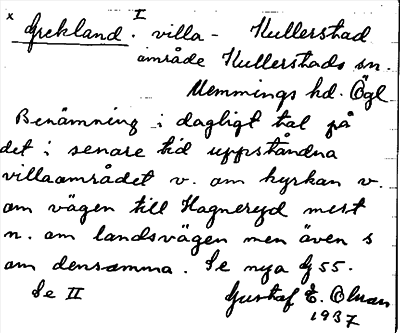 I
x Grekland. villa- Kullerstad
område Kullerstads sn.
Memmings hd. Ögl
Benämning i dagligt tal på
det i senare tid uppståndna
villaområdet v. om kyrkan v.
om vägen till Hagneryd mest
n. om landsvägen men även s
om densamma. Se nya G 55.
Se II Gustaf E. Olsson
1937